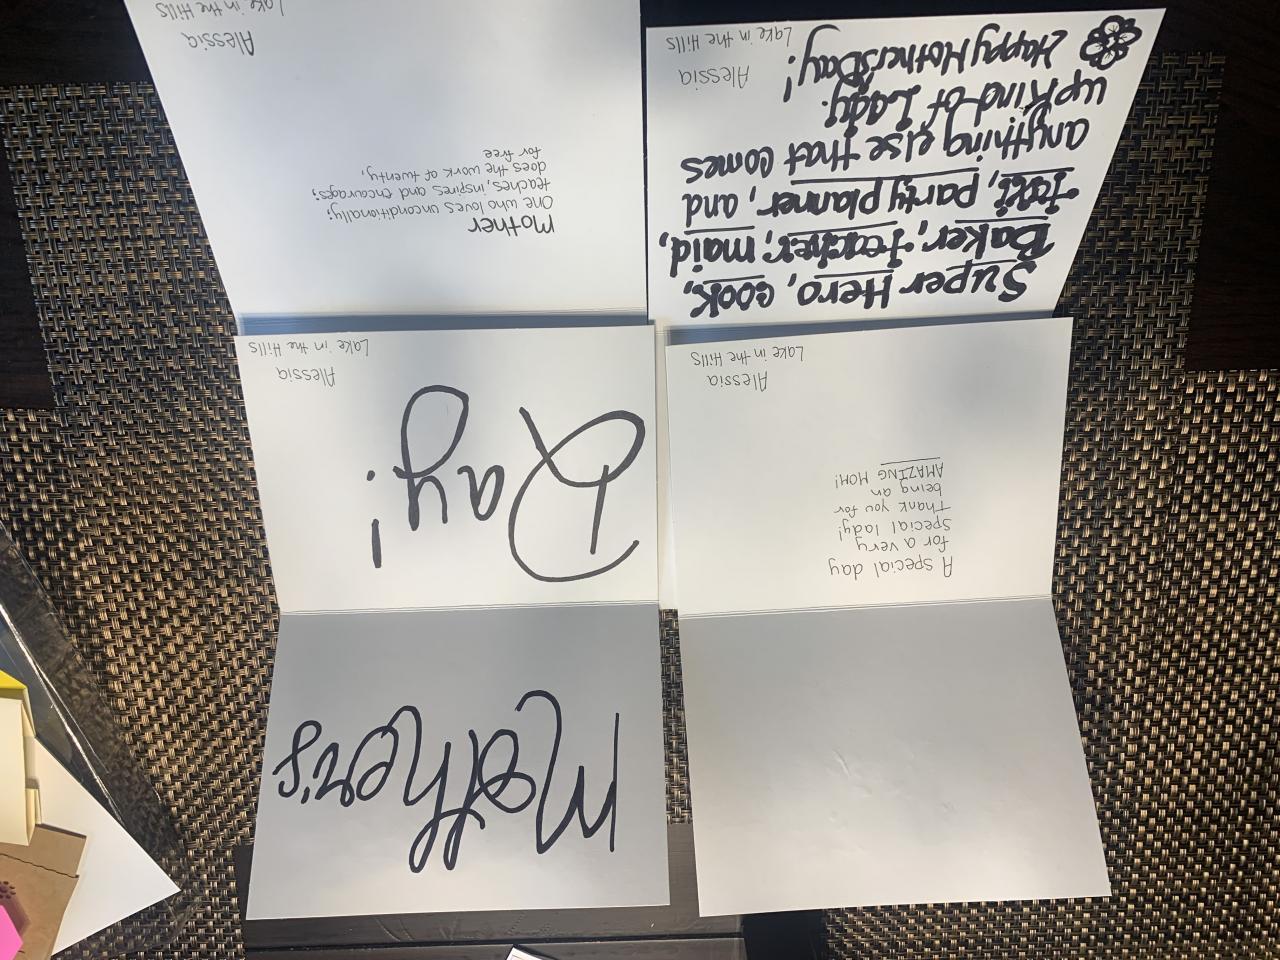 Mother's
Day!
Alessia
Lake in the Hills
A special day
for a very
special lady!
Thank you for
being an
AMAZING MOM!
Alessia
Lake in the Hills
Mother
One who loves unconditionally;
teaches, inspires and encourages;
does the work of twenty,
for free
Alessia
Lake in the Hills
Super Hero, cook,
Baker, Teacher, maid,
Taxi, party planner, and
anything else that comes
up Kind of Lady.
Happy Mother's Day!
Alessia
Lake in the Hills